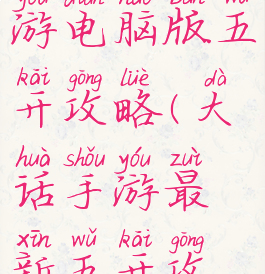 yóu diàn nǎo bǎn wǔ
游电脑版五
kāi gōng lüè dà
开攻略(大
huà shǒu yóu zuì
话手游最
xīn wǔ kāi gōng
新五开攻